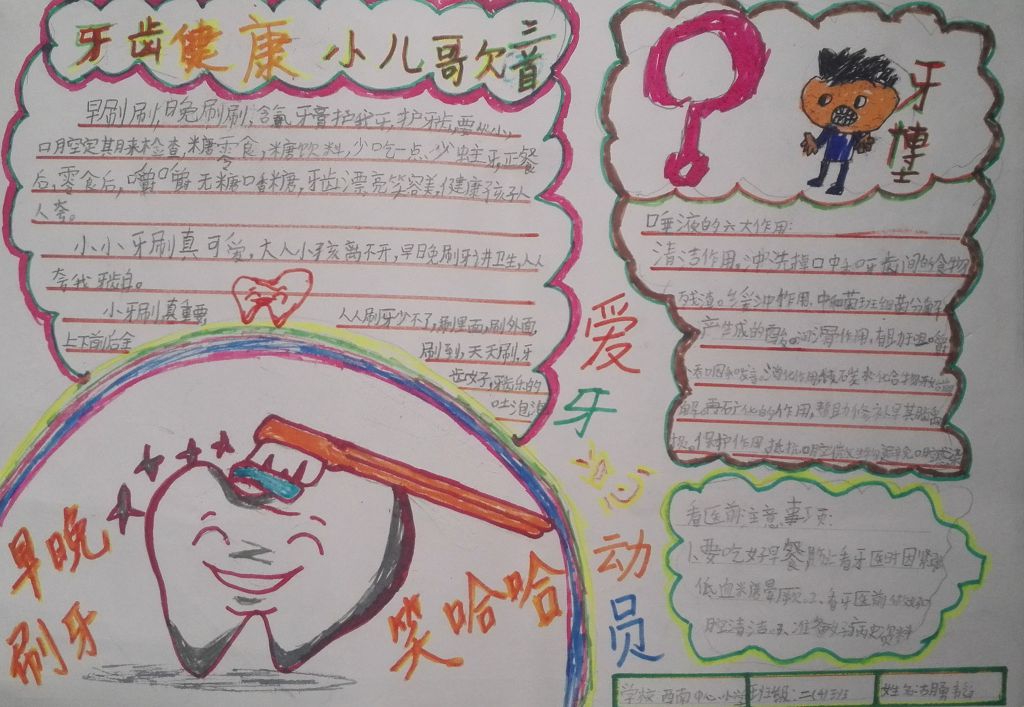 牙齿健康 小儿歌
早刷刷,晚刷刷,含氟牙膏护我牙,护牙齿,要从小,
口腔定期来检查,糖零食,糖饮料,少吃一点,少蛀牙,正餐
后,零食后,嚼嚼无糖口香糖,牙齿漂亮笑容美,健康孩子人
人夸。
小小牙刷真可爱,大人小孩离不开,早日晚刷牙讲卫生,人人
夸我牙齿白。
小牙刷真重要, 人人刷牙少不了,刷里面,刷外面,
上下前后全
刷到,天天刷,牙
齿好,牙齿乐的
吐泡泡
早晚
刷牙
笑哈哈
爱
牙
总
动
员
牙
博
士
唾液的六大作用:
清洁作用,冲洗掉口中
的食物
作用,中和
分解
产生
作用
的作用,帮助修补
保护作用,抵抗口腔
看医前注意事项:
1、要吃好早餐,防止看牙医时因紧张
低血糖晕厥、2、看牙医前
腔清洁、3、准备好病史资料
学校 西南中心小学
班级:二(4)班
姓名